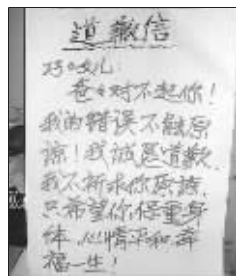 道歉信
好女儿:
爸爸对不起你!
我的错误不能原
谅!我诚恳道歉.
我不祈求你原谅,
只希望你保重身
体,心情平和幸
福一生!